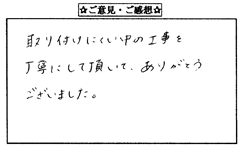 ☆ご意見・ご感想☆
取り付けにくい中の工事を
丁寧にして頂いて、ありがとう
ございました。